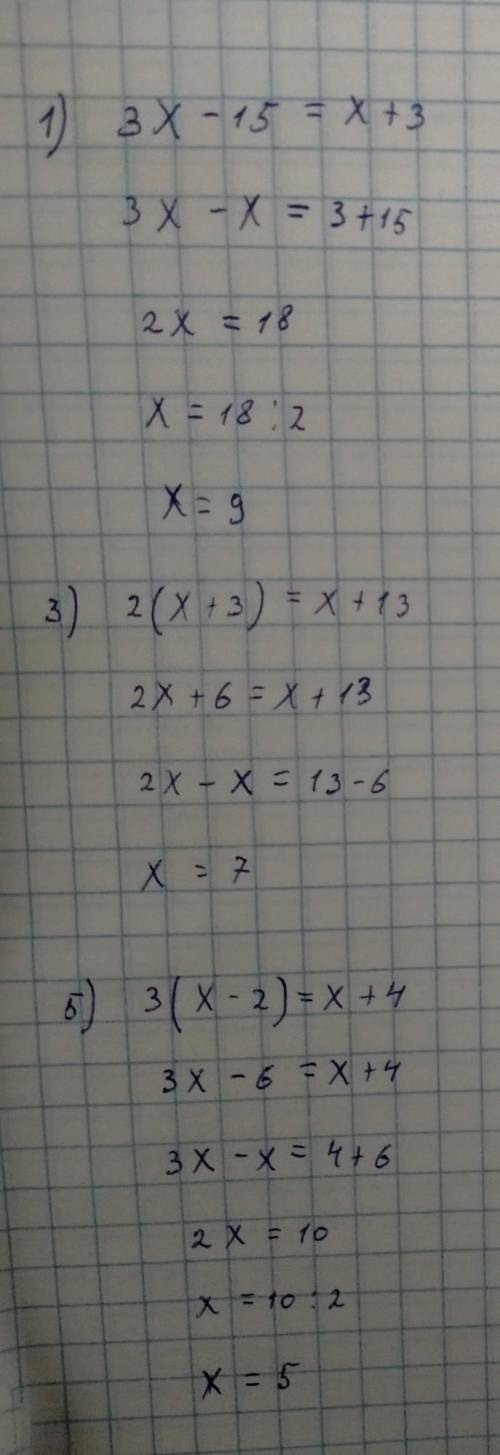 1) 3x - 15 = x + 3
3x - x = 3 + 15
2x = 18
x = 18 : 2
x = 9
3) 2(x + 3) = x + 13
2x + 6 = x + 13
2x - x = 13 - 6
x = 7
5) 3(x - 2) = x + 4
3x - 6 = x + 4
3x - x = 4 + 6
2x = 10
x = 10 : 2
x = 5